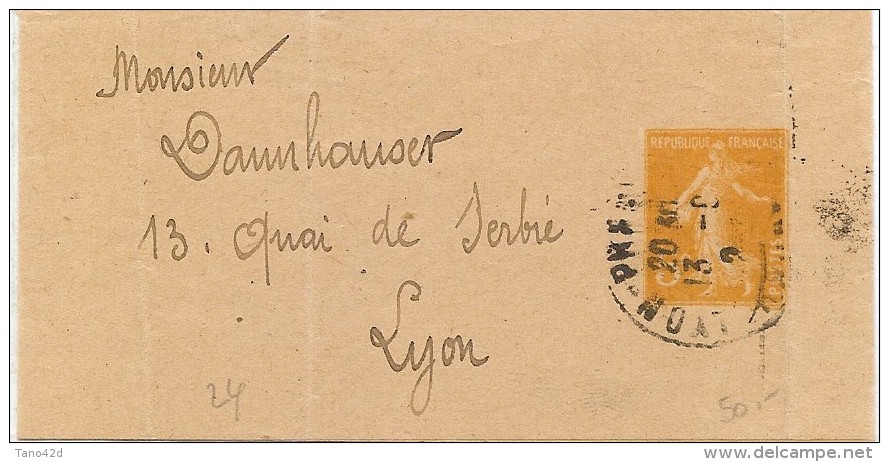 Monsieur
Dannhauser
13. Quai de Serbie
Lyon
REPUBLIQUE FRANÇAISE
20
13
LYON
24
50.-
Tano42d
www.delcampe.net